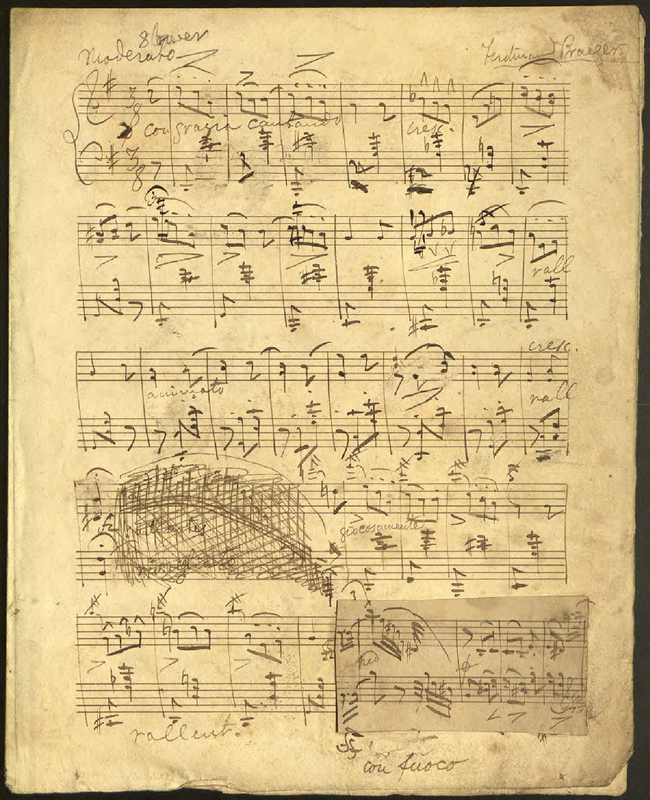 slower
Moderato Ferdinand Praeger
3 8
con grazia cantando cresc.
3 8
rall
cresc.
animato rall
giocosamente
rallent.
con fuoco